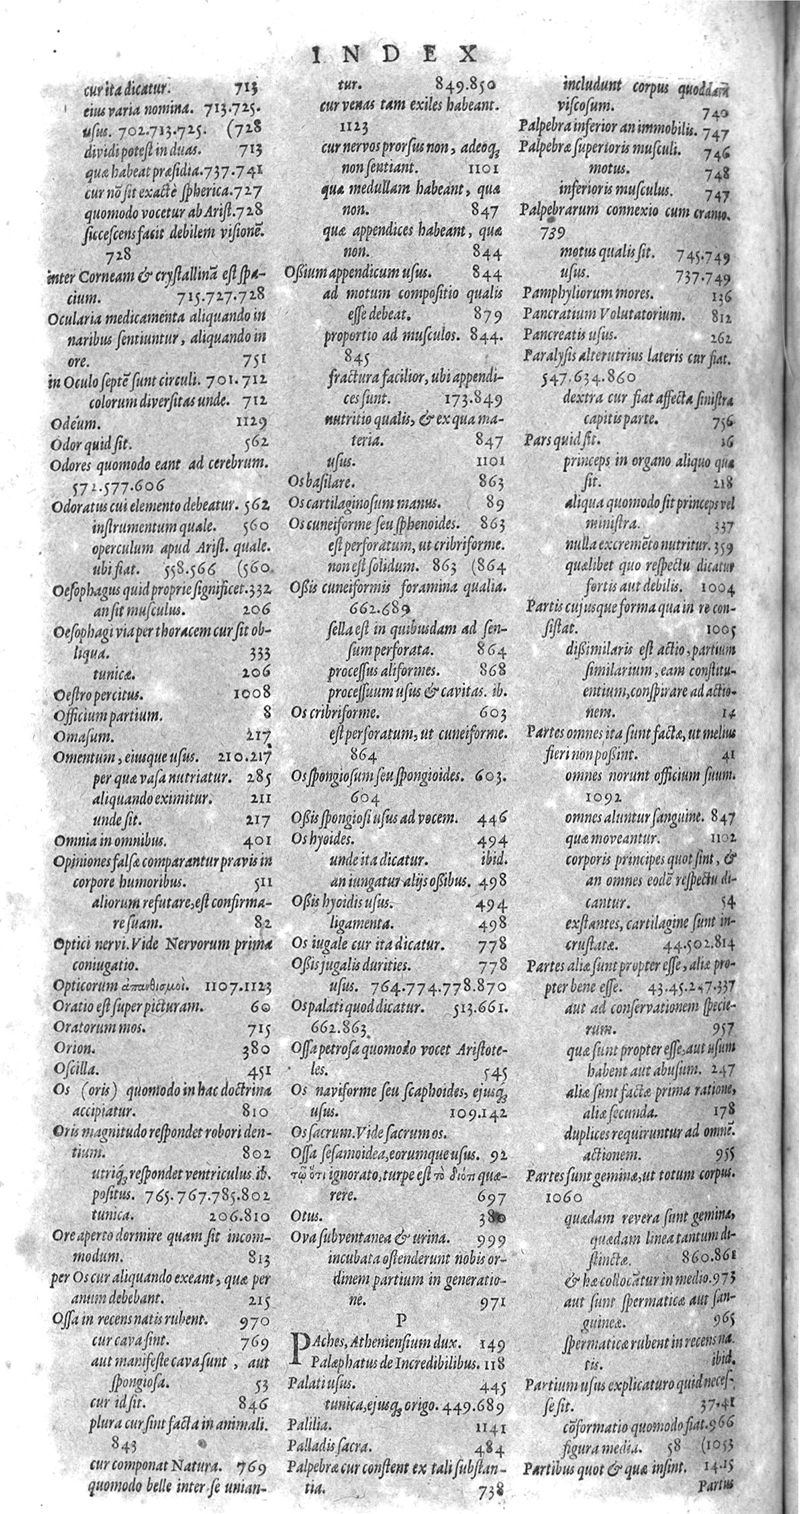 INDEX
cur ita dicatur. 713
eius varia nomina. 713.725.
usus. 702.713.725. (728
dividi potest in duas. 713
quæ habeat præsidia. 737.741
cur nõ sit exactè spherica. 727
quomodo vocetur ab Arist. 728
siccescens facit debilem visionẽ.
728
inter Corneam & crystallinã est spa-
cium. 715.727.728
Ocularia medicamenta aliquando in
naribus sentiuntur, aliquando in
ore. 751
in Oculo septẽ sunt circuli. 701.712
colorum diversitas unde. 712
Odéum. 1129
Odor quid sit. 562
Odores quomodo eant ad cerebrum.
572.577.606
Odoratus cui elemento debeatur. 562
instrumentum quale. 560
operculum apud Arist. quale.
ubi fiat. 558.566 (560
Oesophagus quid proprie significet. 332
an sit musculus. 206
Oesophagi via per thoracem cur sit ob-
liqua. 333
tunicæ. 206
Oestro percitus. 1008
Officium partium. 8
Omasum. 217
Omentum, eiusque usus. 210.217
per quæ vasa nutriatur. 285
aliquando eximitur. 211
unde sit. 217
Omnia in omnibus. 401
Opiniones falsæ comparantur pravis in
corpore humoribus. 511
aliorum refutare, est confirma-
re suam. 82
Optici nervi. Vide Nervorum prima
coniugatio.
Opticorum ἀπαθισμοί. 1107.1123
Oratio est super picturam. 60
Oratorum mos. 715
Orion. 380
Oscilla. 451
Os (oris) quomodo in hac doctrina
accipiatur. 810
Oris magnitudo respondet robori den-
tium. 802
utriq; respondet ventriculus ib.
positus. 765.767.785.802
tunica. 206.810
Ore aperto dormire quam sit incom-
modum. 813
per Os cur aliquando exeant, quæ per
anum debebant. 215
Ossa in recens natis rubent. 970
cur cava sint. 769
aut manifeste cava sunt, aut
spongiosa. 53
cur id sit. 846
plura cur sint facta in animali.
843
cur componat Natura. 769
quomodo belle inter se unian-
tur. 849.850
cur venas tam exiles habeant.
1123
cur nervos prorsus non, adeoq;
non sentiant. 1101
quæ medullam habeant, quæ
non. 847
quæ appendices habeant, quæ
non. 844
Ossium appendicum usus. 844
ad motum compositio qualis
esse debeat. 879
proportio ad musculos. 844.
845
fractura facilior, ubi appendi-
ces sunt. 173.849
nutritio qualis, & ex qua ma-
teria. 847
usus. 1101
Os basilare. 863
Os cartilaginosum manus. 89
Os cuneiforme seu sphenoides. 863
est perforatum, ut cribriforme.
non est solidum. 863 (864
Ossis cuneiformis foramina qualia.
662.689
sella est in quibusdam ad sen-
sum perforata. 864
processus aliformes. 868
processuum usus & cavitas. ib.
Os cribriforme. 603
est perforatum, ut cuneiforme.
864
Os spongiosum seu spongioides. 603.
604
Ossis spongiosi usus ad vocem. 446
Os hyoides. 494
unde ita dicatur. ibid.
an iungatur alijs ossibus. 498
Ossis hyoidis usus. 494
ligamenta. 498
Os iugale cur ita dicatur. 778
Ossis jugalis durities. 778
usus. 764.774.778.870
Os palati quod dicatur. 513.661.
662.863
Ossa petrosa quomodo vocet Aristote-
les. 545
Os naviforme seu scaphoides, ejusq;
usus. 109.142
Os sacrum. Vide sacrum os.
Ossa sesamoidea, eorumque usus. 92
τῷ ὅτι ignorato, turpe est τὸ διότι quæ-
rere. 697
Otus. 380
Ova subventanea & urina. 999
incubata ostendunt nobis or-
dinem partium in generatio-
ne. 971
P
PAches, Atheniensium dux. 149
Palæphatus de Incredibilibus. 118
Palati usus. 445
tunica, ejusq; origo. 449.689
Palilia. 1141
Palladis sacra. 484
Palpebræ cur constent ex tali substan-
tia. 738
includunt corpus quoddam
viscosum. 740
Palpebra inferior an immobilis. 747
Palpebræ superioris musculi. 746
motus. 748
inferioris musculus. 747
Palpebrarum connexio cum cranio.
739
motus qualis sit. 745.749
usus. 737.749
Pamphyliorum mores. 136
Pancratium Volutatorium. 812
Pancreatis usus. 262
Paralysis alterutrius lateris cur fiat.
547.634.860
dextra cur fiat affecta sinistra
capitis parte. 756
Pars quid sit. 16
princeps in organo aliquo quæ
sit. 218
aliqua quomodo sit princeps vel
ministra. 337
nulla excremẽto nutritur. 359
quælibet quo respectu dicatur
fortis aut debilis. 1004
Partis cujusque forma qua in re con-
sistat. 1005
dissimilaris est actio, partium
similarium, eam constitu-
entium, conspirare ad actio-
nem. 14
Partes omnes ita sunt factæ, ut melius
fieri non possint. 41
omnes norunt officium suum.
1092
omnes aluntur sanguine. 847
quæ moveantur. 1102
corporis principes quot sint, &
an omnes eodẽ respectu di-
cantur. 54
exstantes, cartilagine sunt in-
crustatæ. 44.502.814
Partes aliæ sunt propter esse, aliæ pro-
pter bene esse. 43.45.247.337
aut ad conservationem specie-
rum. 957
quæ sunt propter esse, aut usum
habent aut abusum. 247
aliæ sunt factæ prima ratione,
aliæ secunda. 178
duplices requiruntur ad omnẽ
actionem. 955
Partes sunt geminæ, ut totum corpus.
1060
quædam revera sunt geminæ,
quædam linea tantum di-
stinctæ. 860.861
& hæ collocãtur in medio. 973
aut sunt spermaticæ aut san-
guineæ. 965
spermaticæ rubent in recens na-
tis. ibid.
Partium usus explicaturo quid neces-
se sit. 37.41
cõformatio quomodo fiat. 966
figura media. 58 (1053
Partibus quot & quæ insint. 14.15
Partus